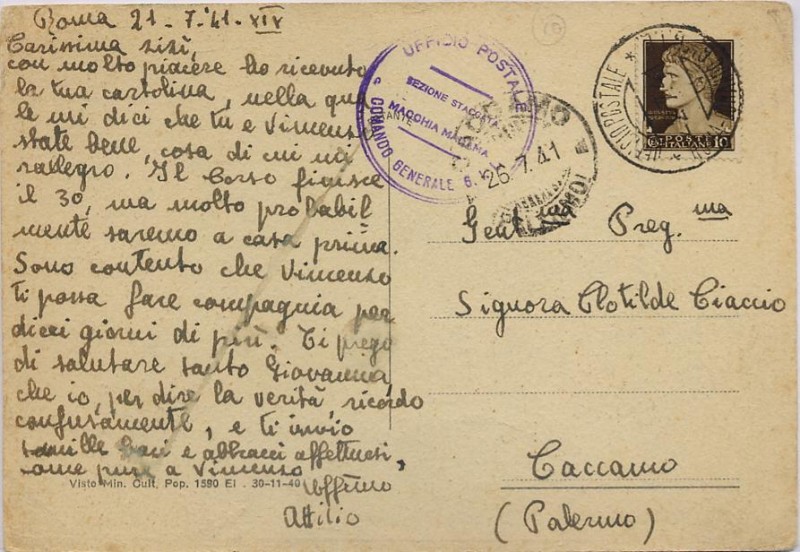 Roma 21-7-41-XIX
Carissima zizì,
con molto piacere ho ricevuto
la tua cartolina, nella qua
le mi dici che tu e Vincenzo
state bene, cosa di cui mi
rallegro. Il Corso finisce
il 30, ma molto probabil
mente saremo a casa prima.
Sono contento che Vincenzo
ti possa fare compagnia per
dieci giorni di più. Ti prego
di salutare tanto Giovanna
che io, per dire la verità, ricordo
confusamente, e ti invio
mille baci e abbracci affettuosi,
come pure a Vincenzo
Attilio
Visto Min. Cult. Pop. 1590 El . 30-11-40
UFFICIO POSTALE
SEZIONE STACCATA
MACCHIA MADAMA
COMANDO GENERALE G.
26.7.41
UFFICIO POSTALE
POSTE ITALIANE
10
Gent.ma Preg.ma
Signora Clotilde Ciaccio
Caccamo
(Palermo)